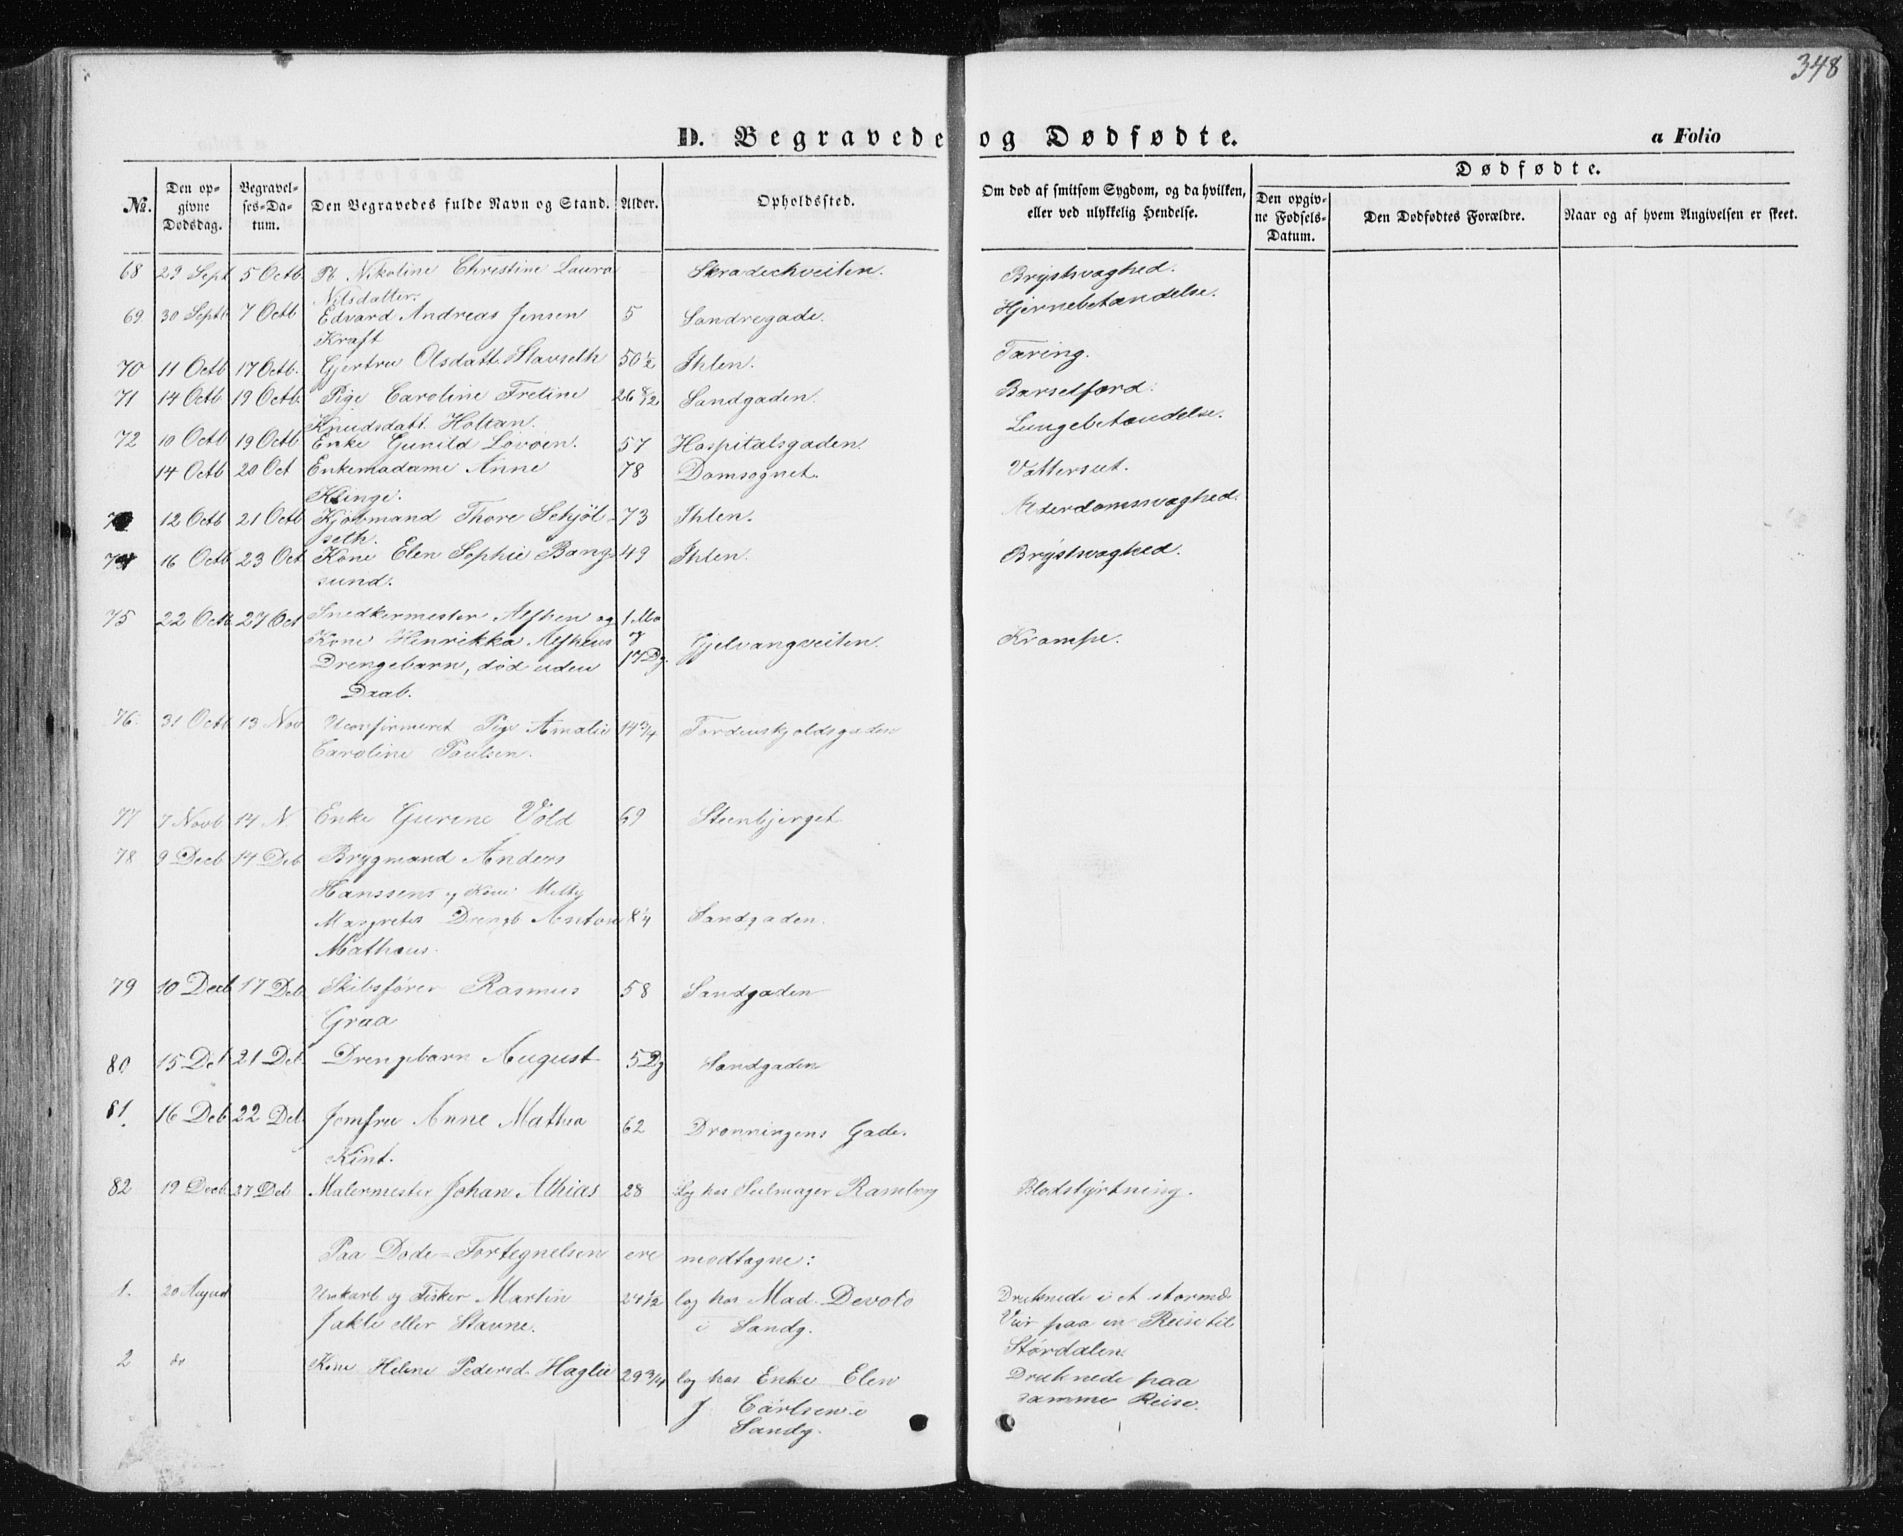 348
D. Begravede og Dødfødte.
a Folio
Dødfødte.
No.
Den opgivne Dødsdag.
Begravelses-Datum.
Den Begravedes fulde Navn og Stand.
Alder.
Opholdssted.
Om død af smitsom Sygdom, og da hvilken, eller ved ulykkelig Hendelse.
Den opgivne Fødsels-Datum.
Den Dødfødtes Forældre.
Naar og af hvem Angivelsen er skeet.
68 29 Sept 5 Octb Pb Nikoline Christine Laura Skradechveiten. Brystsvaghed.
Nilsdatter.
69 30 Septb 7 Octb Edvard Andreas Jensen 5 Sondregade. Hjernebetændelse.
Kraft
70 11 Octb 17 Octb. Gjertru Olsdatt. Stavseth 50 1/2 Ihlen. Tæring.
71 14 Octb 19 Octb. Pige Caroline Fretine 26 8/12 Sandgaden. Barselfærd.
Knudsdatt. Holtan.
72 10 Octb 19 Octb Enke Gunild Lovøen. 57 Hospitalsgaden. Lungebetændelse.
14 Octb 20 Oct Enkemadame Anne 78 Domsognet. Vattersut.
Klinge.
12 Octb 21 Octb Kjøbmand Thore Schjøl- 73 Ihlen. Alderdomssvaghed.
seth.
74 16 Octb 23 Oct Kone Elen Sophie Bang- 49 Ihlen. Brystsvaghed.
sund.
75 22 Octb 27 Oct Snedkermester Alfhen og 1 Mo
Kone Henrikka Alfhens 7 Gjelvangveiten. Krampe.
Drengebarn, død uden 17 Dg.
Daab.
76. 31 Octb 13 Nov Uconfirmeret Pige Amalie 14 3/4 Tordenskjoldsgaden
Caroline Poulsen.
77 7 Novb 14 N. Enke Gurine Vold 69 Steenbjerget
78 9 Decb 14 Deb Brygmand Anders
Hanssens og Kone Melky
Margretes Drengb Anton 8 1/4 Sandgaden.
Mathæus.
79 10 Decb 17 Deb Skibsfører Rasmus 58 Sandgaden
Graa
80 15 Deb 21 Deb. Drengebarn August 5 Dg Sandgaden
81. 16 Deb 22 Deb. Jomfru Anne Mathea 62 Dronningens Gade.
Kint.
82 19 Decb. 27 Deb Malermester Johan Athias 28 Log hos Seilmager Ramberg Blodstyrtning.
Paa Døde-Fortegnelsen ere modtagne:
1. 20 August Unkarl og Fisker Martin 24 1/2 log hos Mad. Devold Druknede i et stormd.
Jakti eller Stavne. i Sandg. Veir paa en Reise til
Størdalen.
2 do Kone Helene Pedersd. Haglie 29 3/4 log hos Enke Elen Druknede paa
J Carlsen i samme Reise.
Sandg.